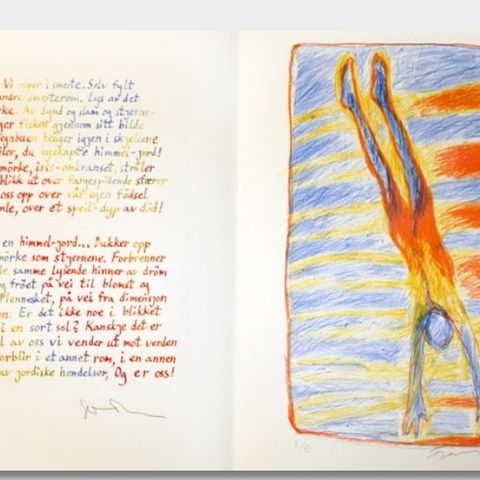 Vi roper i smerte. Selv fylt
andre smerterom. Lys av det
rke. Av dynd og slam og stjerne-
ger fisken gjennom sitt bilde
egnbuen henger igjen i skjellene
ilor, du nyskapte himmel-jord!
mörke, iris-omkranset, stråler
blikk ut over fargespillende sfærer
oss opp over vår egen födsel
mle, over et speil-dyp av död!
en himmel-jord... Dukker opp
mörke som stjernene. Forbrenner
le samme lysende hinner av dröm
g fröet på vei til blomst og
Mennesket, på vei fra dimensjon
on. Er det ikke noe i blikket
i en sort sol? Kanskje det er
l av oss vi vender ut mot verden
forblir i et annet rom, i en annen
av jordiske hendelser, Og er oss!